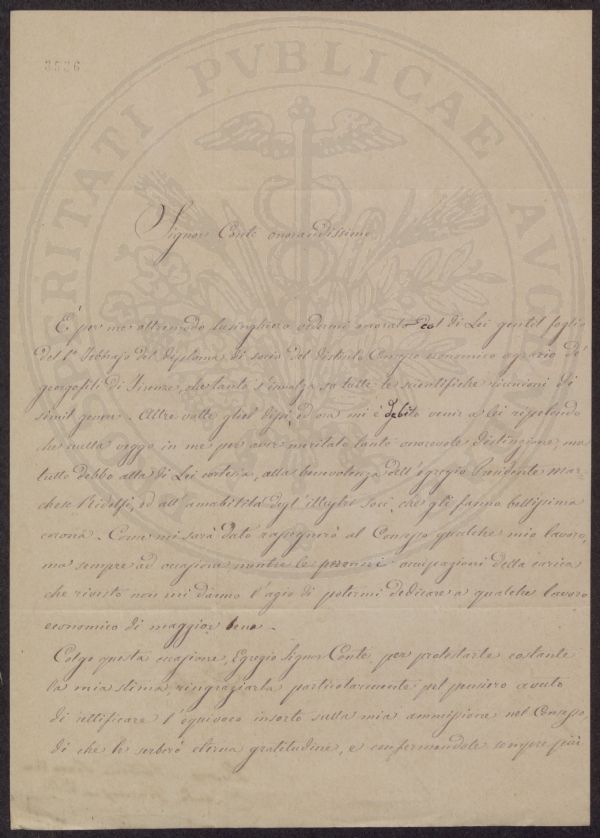 3536
PROSPERITATI PVBLICAE AVGENDAE
Signor Conte onorandissimo
È per me oltremodo lusinghiero vedermi onorato col di Lei gentil foglio
del 1° Febbrajo del Diploma di socio del distinto Consesso economico agrario de'
georgofili di Firenze, che tanto s'innalza su tutte le scientifiche riunioni di
simil genere. Altre volte gliel dissi, ed ora mi è debito venir a lei ripetendo
che nulla veggo in me per aver meritato tanto onorevole distinzione, ma
tutto debbo alla di Lei cortesia, alla benevolenza dell'egregio Presidente Mar-
chese Ridolfi, ed all'amabilità degl'illustri Soci, che gli fanno bellissima
corona. Come mi sarà dato rassegnerò al Consesso qualche mio lavoro,
ma sempre ad occasione mentre le perenni occupazioni della carica
che rivesto non mi dànno l'agio di potermi dedicare a qualche lavoro
economico di maggior lena.
Colgo questa occasione, Egregio Signor Conte, per protestarle costante
la mia stima, ringraziarla particolarmente pel pensiero avuto
di rettificare l'equivoco insorto sulla mia ammissione nel Consesso,
di che le serberò eterna gratitudine, e confermandole sempre più